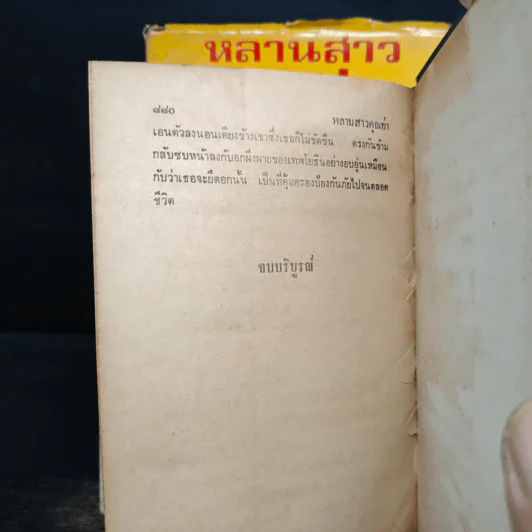 หลานสาว
๘๘๐
หลานสาวคุณย่า
เอนตัวลงนอนเคียงข้างเขาซึ่งเธอก็ไม่ขัดขืน ตรงกันข้าม
กลับซบหน้าลงกับอกผึ่งผายของเทพโยธินอย่างอบอุ่นเหมือน
กับว่าเธอจะยึดอกนั้น เป็นที่คุ้มครองป้องกันภัยไปจนตลอด
ชีวิต
จบบริบูรณ์